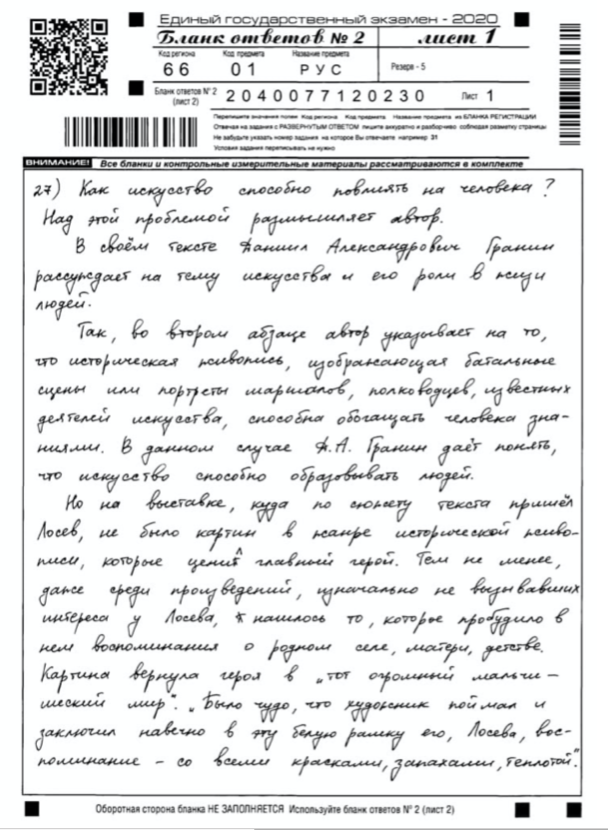 Единый государственный экзамен - 2020
Бланк ответов № 2 лист 1
Код региона Код предмета Название предмета
66 01 РУС Резерв - 5
Бланк ответов № 2 (лист 2) 2040077120230 Лист 1
Перепишите значения полей Код региона Код предмета Название предмета из БЛАНКА РЕГИСТРАЦИИ
Отвечая на задания с РАЗВЕРНУТЫМ ОТВЕТОМ пишите аккуратно и разборчиво соблюдая разметку страницы
Не забудьте указать номер задания на которое Вы отвечаете например 31
Условия задания переписывать не нужно
ВНИМАНИЕ! Все бланки и контрольные измерительные материалы рассматриваются в комплекте
27) Как искусство способно повлиять на человека?
Над этой проблемой размышляет автор.
В своём тексте Даниил Александрович Гранин
рассуждает на тему искусства и его роли в жизни
людей.
Так, во втором абзаце автор указывает на то,
что историческая живопись, изображающая батальные
сцены или портреты маршалов, полководцев, известных
деятелей искусства, способна обогащать человека зна-
ниями. В данном случае Д.А. Гранин даёт понять,
что искусство способно образовывать людей.
Но на выставке, куда по сюжету текста пришёл
Лосев, не было картин в жанре исторической живо-
писи, которые ценит главный герой. Тем не менее,
даже среди произведений, изначально не вызывавших
интереса у Лосева, нашлось то, которое пробудило в
нем воспоминания о родном селе, матери, детстве.
Картина вернула героя в „тот огромный мальчи-
шеский мир". „Было чудо, что художник поймал и
заключил навечно в эту белую рамку его, Лосева, вос-
поминание – со всеми красками, запахами, теплотой".
Оборотная сторона бланка НЕ ЗАПОЛНЯЕТСЯ Используйте бланк ответов № 2 (лист 2)